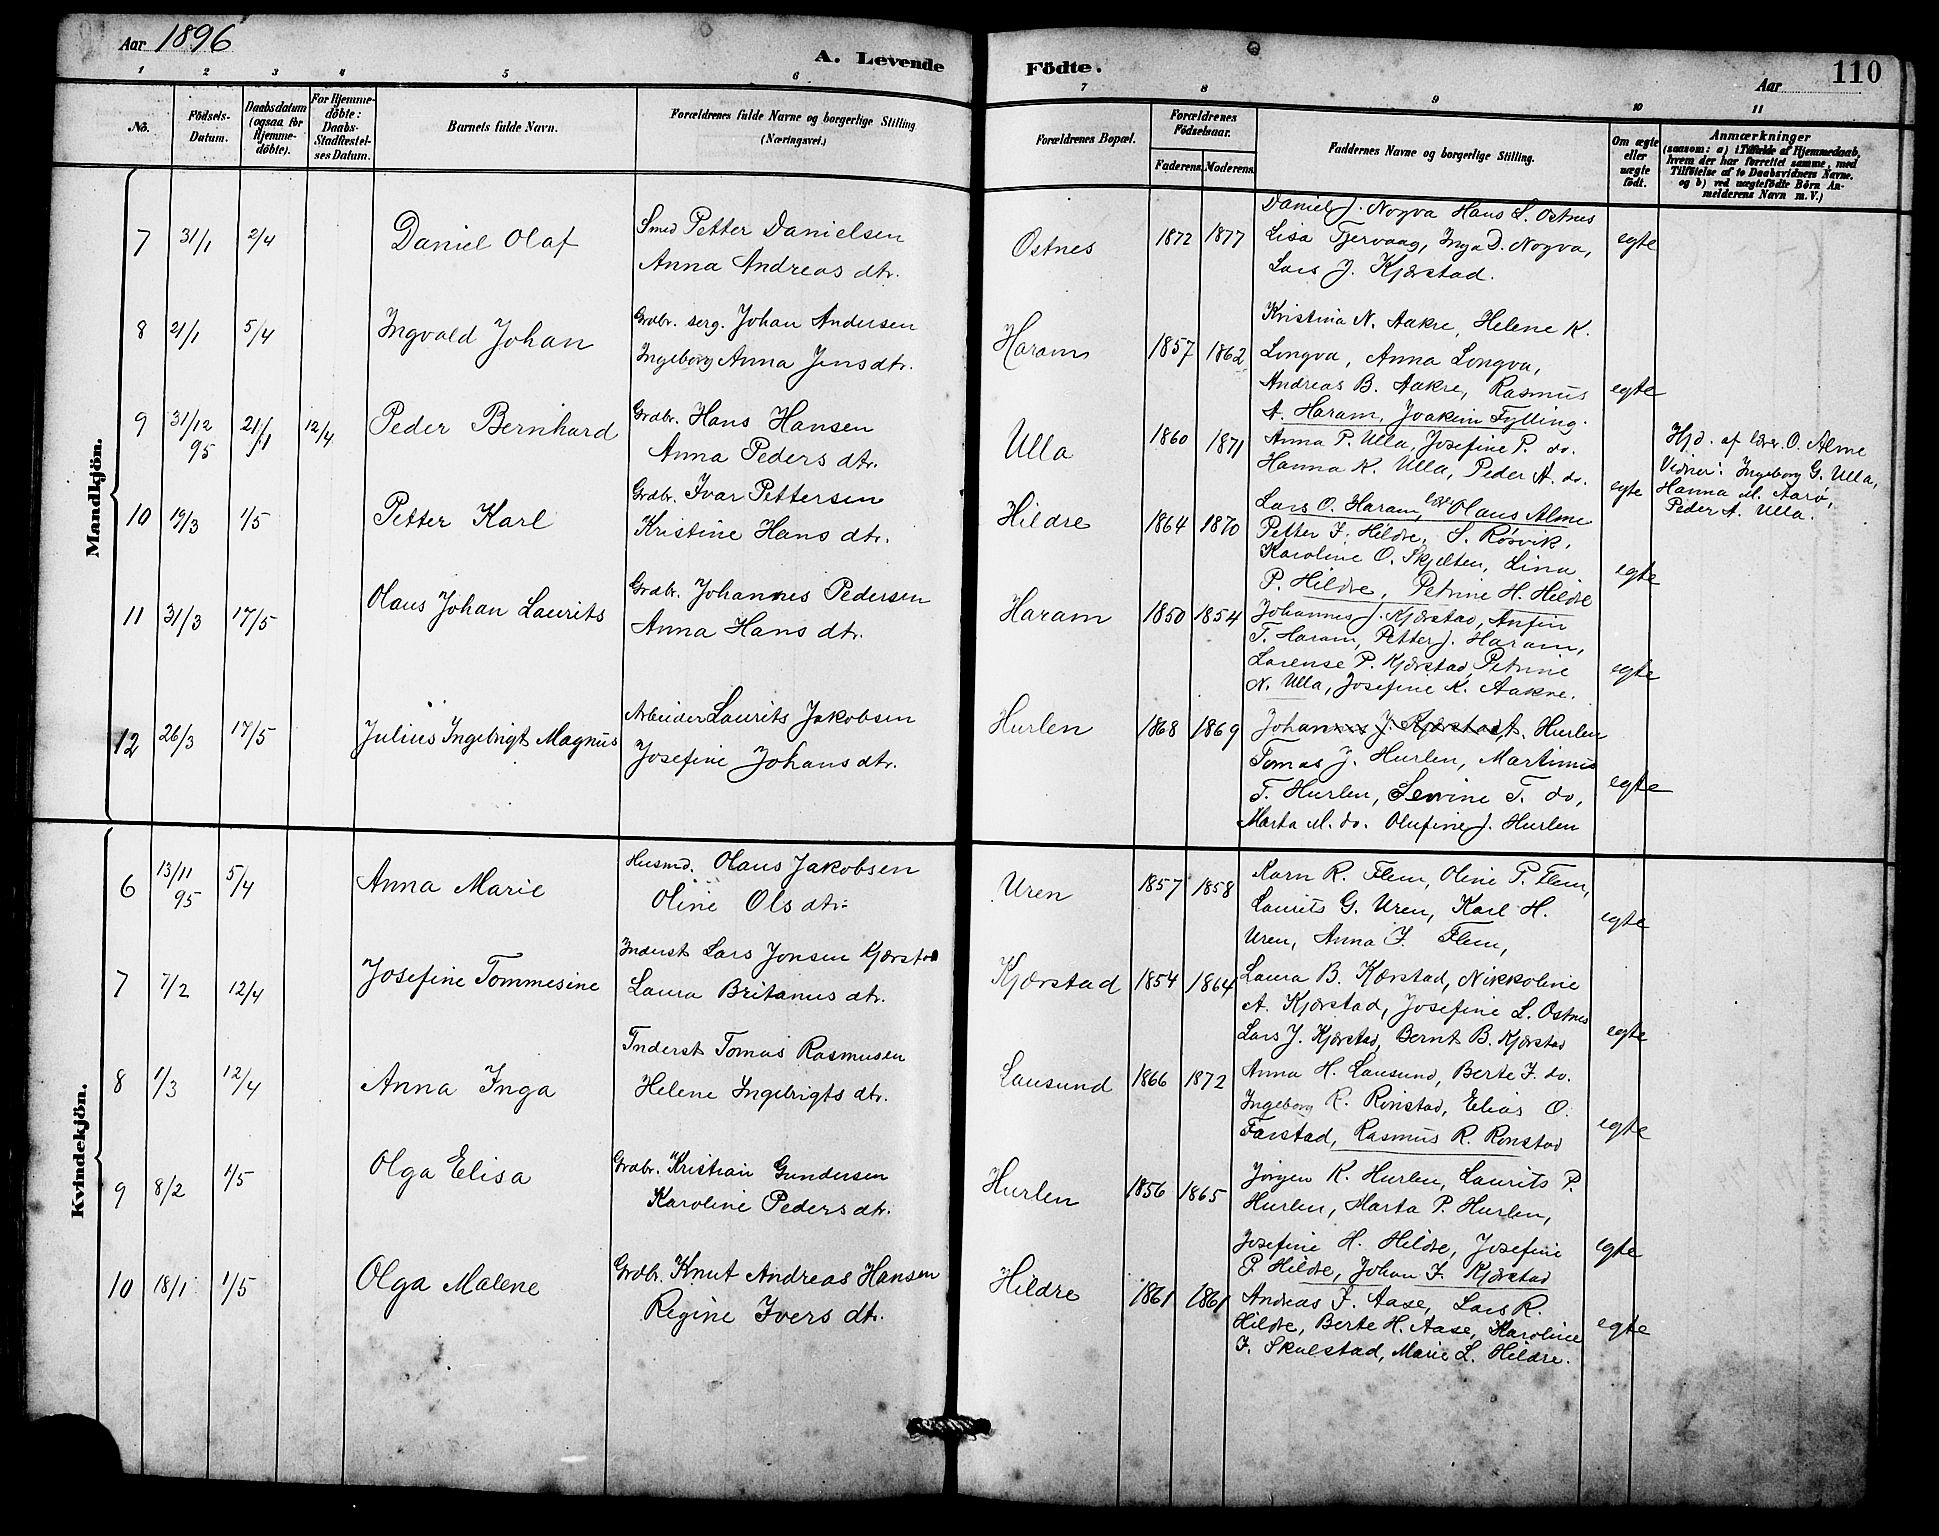 Aar 1896
A. Levende Födte.
Aar 110
1 2 3 4 5 6 7 8 9 10 11
No.
Födsels-Datum.
Daabsdatum (ogsaa for Hjemme-döbte).
For Hjemme-döbte: Daabs-Stadfæstel-ses Datum.
Barnets fulde Navn.
Forældrenes fulde Navne og borgerlige Stilling (Næringsvei.)
Forældrenes Bopæl.
Forældrenes Födselsaar.
Faderens. Moderens.
Faddernes Navne og borgerlige Stilling.
Om ægte eller uægte födt.
Anmærkninger
(saasom: a) i Tilfælde af Hjemmedaab,
hvem der har forrettet samme, med
Tilföielse af to Daabsvidners Navne.
og b) ved uægtefödte Börn An-
melderens Navn m.V.)
Mandkjön.
7 31/1 2/4 Daniel Olaf
Smed Petter Danielsen
Anna Andreas dtr.
Ostnes 1872 1877
Daniel J. Nogva Hans L. Ostnes
Lisa Fjervaag, Inga D. Nogva,
Lars J. Kjærstad.
egte
8 21/1 5/4 Ingvald Johan
Grdbr. serg. Johan Andersen
Ingeborg Anna Jensdtr.
Haram 1857 1862
Kristina N. Aakre, Helene K.
Longva, Anna Longva,
Andreas B. Aakre, Rasmus
A. Haram, Joakim Fylling.
egte
9 31/12 95 21/1 12/4 Peder Bernhard
Grdbr. Hans Hansen
Anna Peders dtr.
Ulla 1860 1871
Anna P. Ulla, Josefine P. do.
Hanna K. Ulla, Peder A. do.
Lars O. Haram, lær. Olaus Alme
egte
Hjd. af lærer O. Alme
Vidner: Ingeborg G. Ulla,
Hanna M. Aarø,
Peder A. Ulla.
10 19/3 1/5 Petter Karl
Grdbr. Ivar Pettersen
Kristine Hans dtr.
Hildre 1864 1870
Petter I. Hildre, S. Rösvik,
Karoline O. Skjelten, Lina
P. Hildre, Petrine H. Hildre
egte
11 31/3 17/5 Olaus Johan Laurits
Grdbr. Johannes Pedersen
Anna Hans dtr.
Haram 1850 1854
Johannes J. Kjærstad, Anfin
T. Haram, Petter J. Haram,
Lorense P. Kjærstad, Petrine
N. Ulla, Josefine K. Aakre.
egte
12 26/3 17/5 Julius Ingebrigt Magnus
Arbeider Laurits Jakobsen
Josefine Johans dtr.
Hurlen 1868 1869
Johannes J. Kjærstad, A. Hurlen
Tomas J. Hurlen, Martinus
T. Hurlen, Severine T. do,
Marta M. do. Olufine J. Hurlen
egte
Kvindekjön.
6 13/11 95 5/4 Anna Marie
Husmd. Olaus Jakobsen
Oline Ols dtr.
Uren 1857 1858
Karn R. Flem, Oline P. Flem,
Laurits G. Uren, Karl H.
Uren, Anna I. Flem,
egte
7 7/2 12/4 Josefine Tommesine
Inderst Lars Jonsen Kjærstad
Laura Britanus dtr.
Kjærstad 1854 1864
Laura B. Kjærstad, Nikkoline
A. Kjærstad, Josefine L. Ostnes
Lars J. Kjærstad, Bernt B. Kjærstad
egte
8 1/3 12/4 Anna Inga
Inderst Tomas Rasmusen
Helene Ingebrigts dtr.
Lausund 1866 1872
Anna H. Lausund, Berte I. do.
Ingeborg R. Rönstad, Elias O.
Farstad, Rasmus R. Rönstad
egte
9 8/2 1/5 Olga Elisa
Grdbr. Kristian Gundersen
Karoline Peders dtr.
Hurlen 1856 1865
Jörgen K. Hurlen, Laurits P.
Hurlen, Marta P. Hurlen,
Josefine H. Hildre, Josefine
P. Hildre, Johan I. Kjærstad
egte
10 18/1 1/5 Olga Malene
Grdbr. Knut Andreas Hansen
Regine Ivers dtr.
Hildre 1861 1861
Andreas I. Aase, Lars R.
Hildre, Berte H. Aase, Karoline
I. Skulstad, Marie L. Hildre.
egte